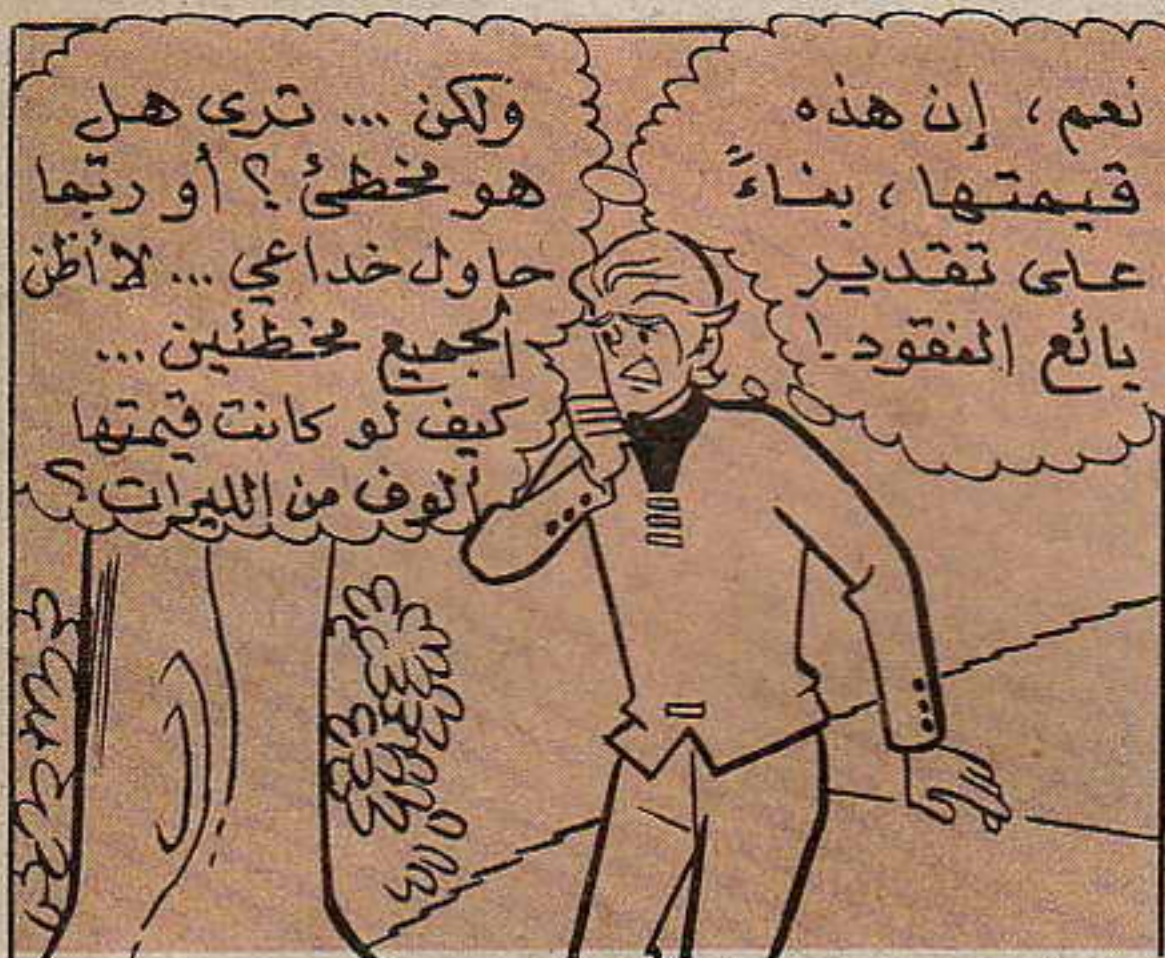 نعم، إن هذه
قيمتها، بناءً
على تقدير
بائع النقود!
ولكن ... ترى هل
هو مخطئ؟ أو ربّما
حاول خداعي ... لا أظن
الجميع مخطئين ...
كيف لو كانت قيمتها
ألوف من الليرات؟